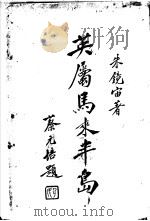 朱鏡宙著
英屬馬來半島
蔡元培題